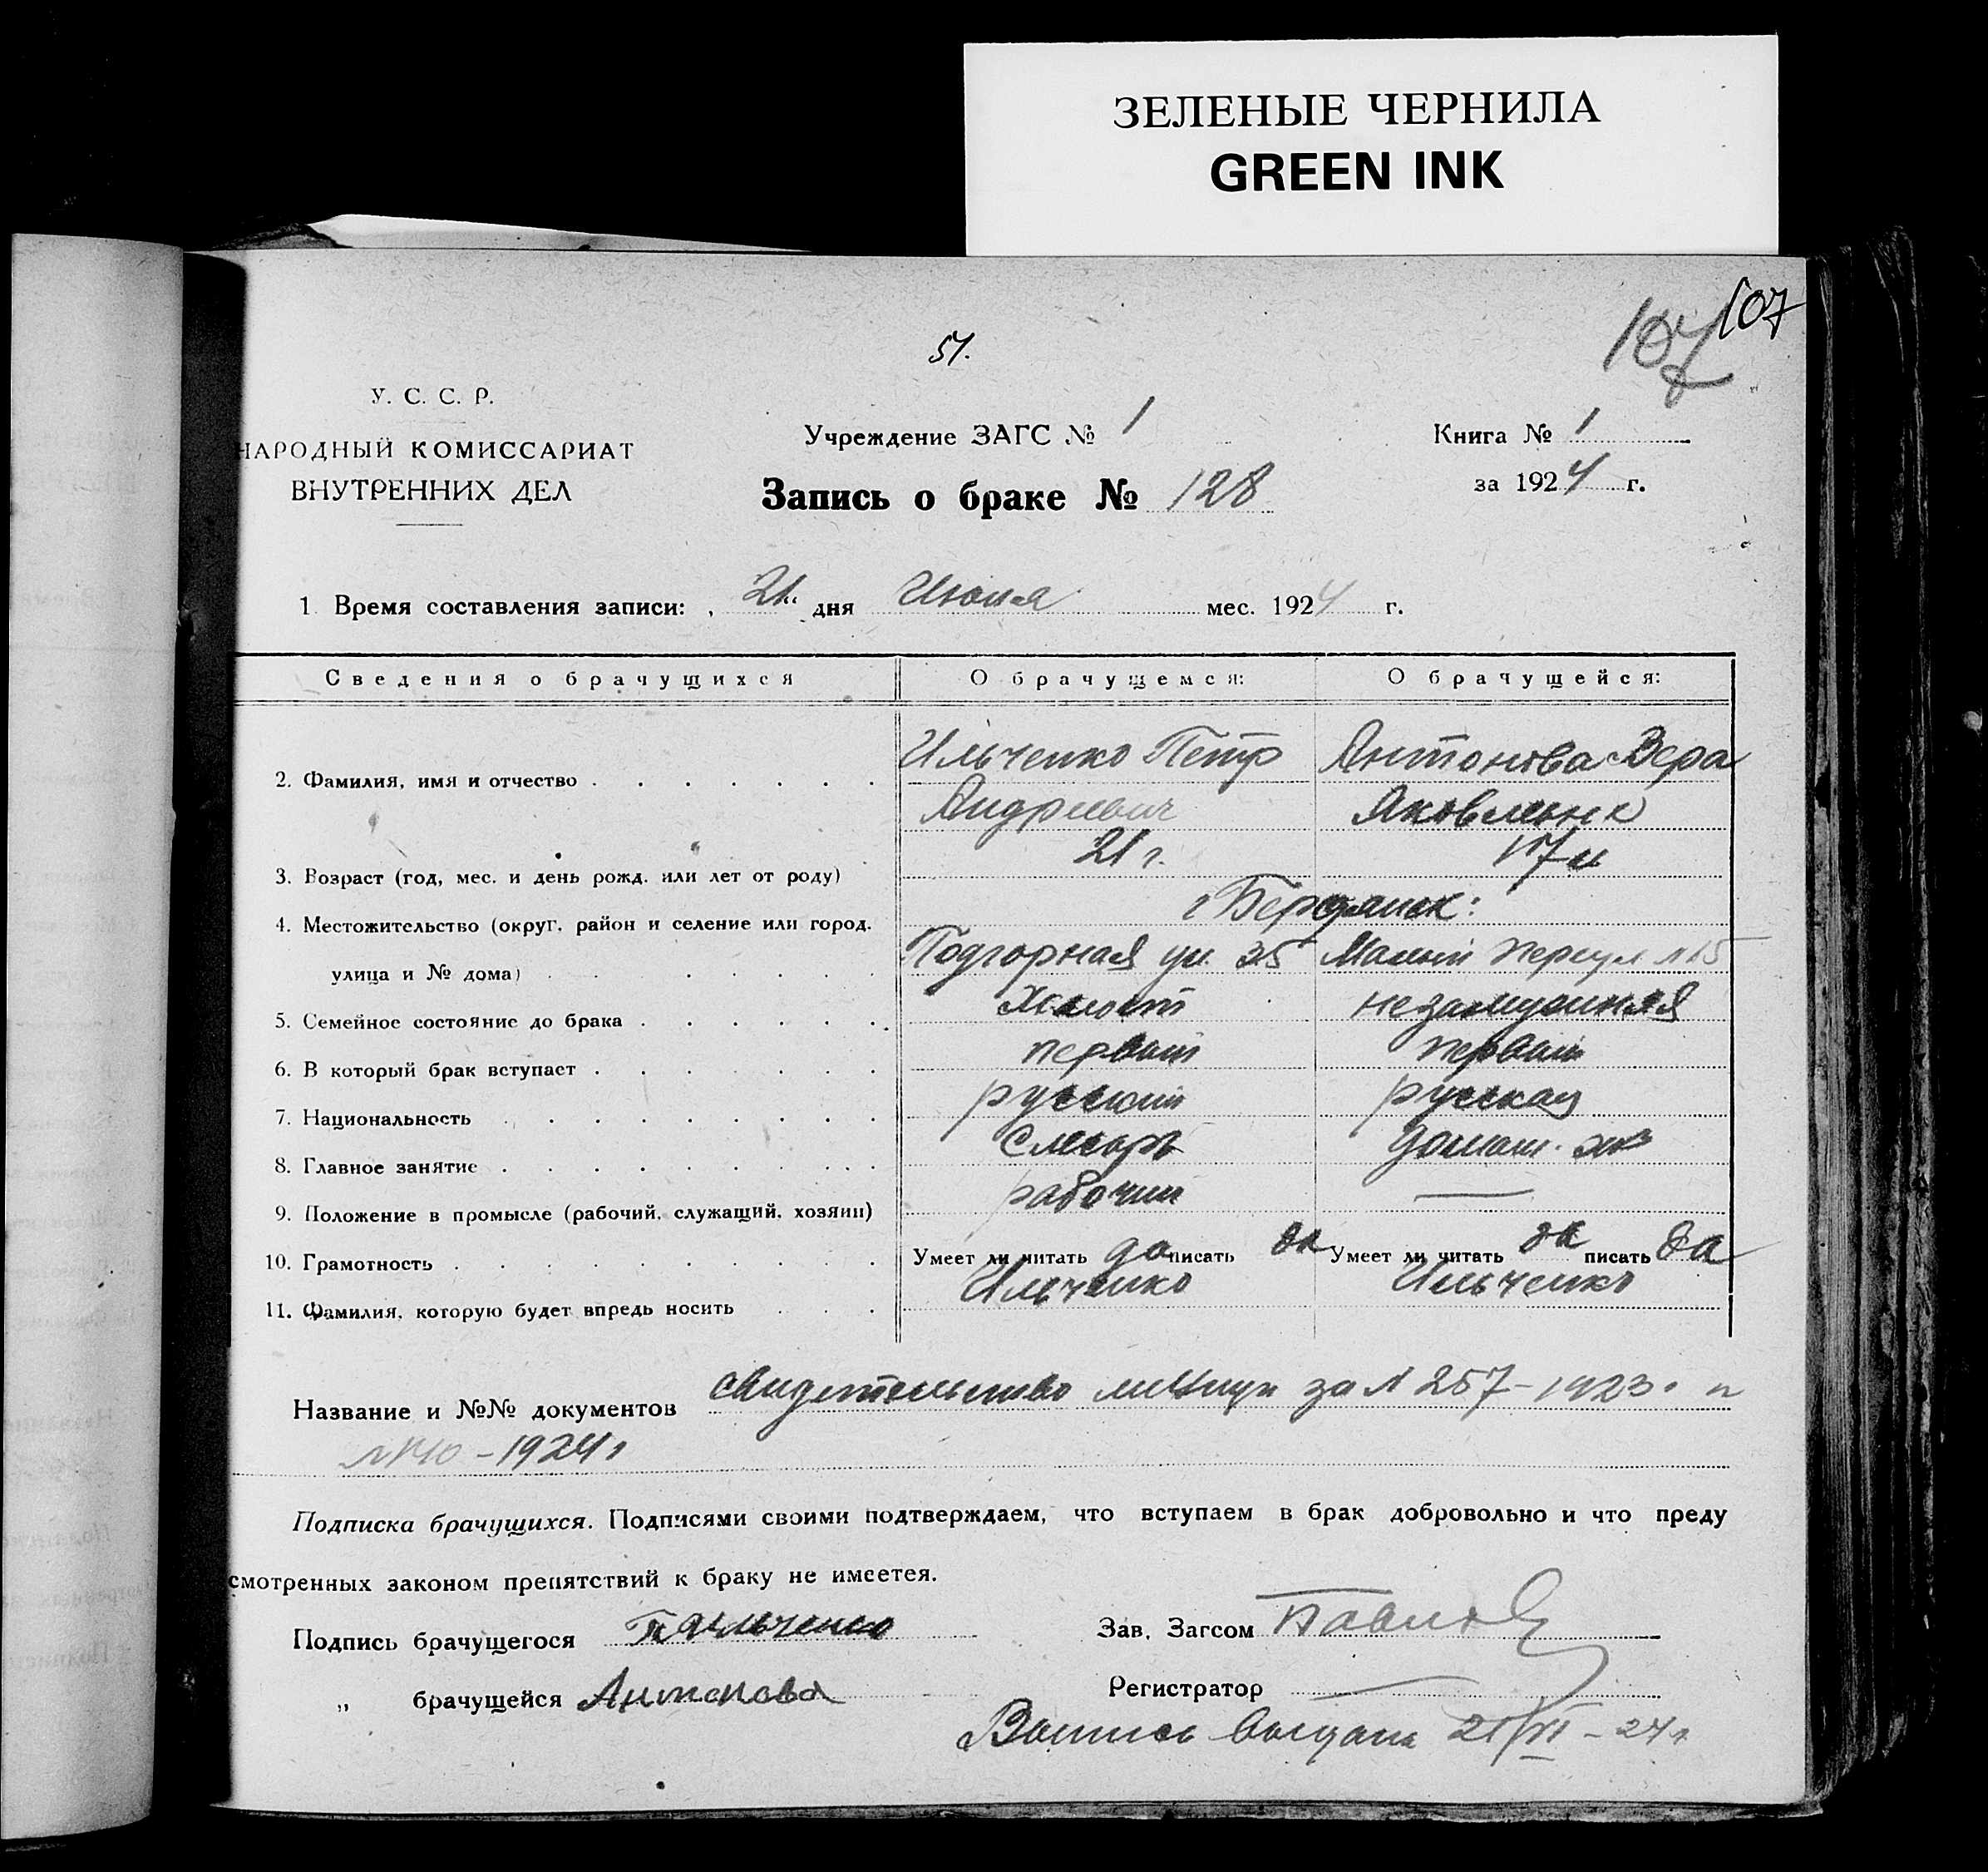 ЗЕЛЕНЫЕ ЧЕРНИЛА
GREEN INK
107
107
51.
У. С. С. Р.
НАРОДНЫЙ КОМИССАРИАТ
ВНУТРЕННИХ ДЕЛ
Учреждение ЗАГС № 1
Книга № 1
Запись о браке № 128
за 1924 г.
1 Время составления записи: „ 21 “ дня Июня мес. 1924 г.
Сведения о брачущихся
О брачущемся:
О брачущейся:
2. Фамилия, имя и отчество
Ильченко Петр Антонова Вера
Андреевич Яковлевна
3. Возраст (год, мес. и день рожд. или лет от роду)
21 г. 17 л
4. Местожительство (округ, район и селение или город,
г Бердянск:
улица и № дома)
Подгорная ул. 35 Малый переул №15
5. Семейное состояние до брака
Холост незамужняя
6. В который брак вступает
первый первый
7. Национальность
русский русская
8. Главное занятие
Слесарь домаш. хоз
9. Положение в промысле (рабочий, служащий, хозяин)
рабочий —
10. Грамотность
Умеет ли читать да писать да Умеет ли читать да писать да
11. Фамилия, которую будет впредь носить
Ильченко Ильченко
Название и №№ документов свидетельство милиции за № 257 - 1923 г и
- 1924 г
Подписка брачущихся. Подписями своими подтверждаем, что вступаем в брак добровольно и что преду
смотренных законом препятствий к браку не имеется.
Подпись брачущегося П Ильченко
Зав. Загсом Павлов
„ брачущейся Антонова
Регистратор —
Выпись выдана 21/VI - 24 г